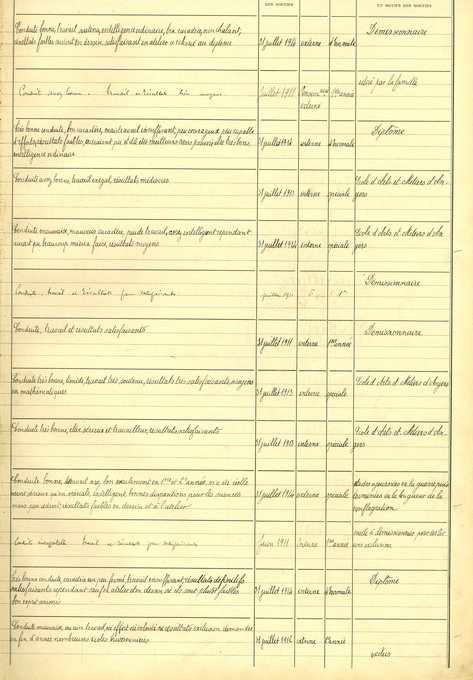 DES SORTIES
ET MOTIFS DES SORTIES
Conduite bonne, travail soutenu, intelligence ordinaire, bon caractère, nonchalant,
résultats faibles surtout en dessin, satisfaisant en atelier a échoué au diplôme
31 juillet 1914 interne 4e normale
Démissionnaire
Conduite assez bonne - travail et résultats très moyens
juillet 1911 externe 1ère année
retiré par la famille
Très bonne conduite, bon caractère, mais travail insuffisant, peu courageux peu capable
d'efforts, résultats faibles, auraient pu être meilleurs sans pouvoir être très bons,
intelligence ordinaire
31 juillet 1914 interne 4e normale
Diplôme
Conduite assez bonne, travail inégal, résultats médiocres
31 juillet 1913 interne spéciale
Ecole d'Arts et Métiers d'An-
gers
Conduite mauvaise, mauvais caractère, peu de travail, assez intelligent cependant
aurait pu beaucoup mieux faire, résultats moyens
31 juillet 1914 interne spéciale
Ecole d'Arts et Métiers d'An-
gers
Conduite, travail et résultats peu satisfaisants
juillet 1911
Démissionnaire
Conduite, travail et résultats satisfaisants
31 juillet 1911 interne 1ère année
Démissionnaire
Conduite très bonne, timide, travail très sérieux, résultats très satisfaisants, moyens
en mathématiques
31 juillet 1913 interne spéciale
Ecole d'Arts et Métiers d'Angers
Conduite très bonne, élève sérieux et travailleur, résultats satisfaisants
31 juillet 1913 interne spéciale
Ecole d'Arts et Métiers d'An-
gers
Conduite bonne, travail assez bon seulement en 1ère et 2e année, n'a été réelle
ment sérieux qu'en spéciale, intelligent, bonnes dispositions pour les sciences
mais peu adroit, résultats faibles en dessin et à l'atelier
31 juillet 1914 interne spéciale
la guerre, puis
la longueur de la
conflagration
Conduite travail et résultats peu satisfaisants
Juin 1911 interne 1ère année
invité à démissionner pour éviter
une exclusion
Très bonne conduite, caractère un peu fermé, travail insuffisant, résultats définitifs
satisfaisants cependant sauf en atelier et en dessin où ils sont plutôt faibles
bon esprit soumis
31 juillet 1914 interne 4e normale
Diplôme
Conduite mauvaise, aucun travail, ni effort ni volonté ni résultats exclusion demandée
en fin d'année nombreuses
31 juillet 1912 interne 2e année
exclus